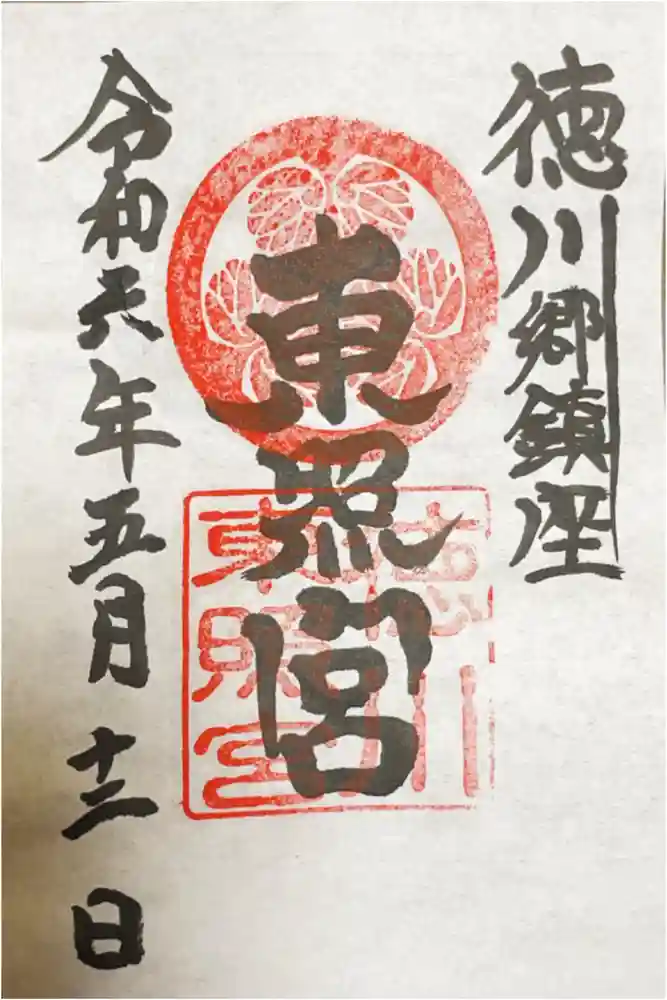 徳川郷鎮座
東照宮
令和元年五月十二日
東照宮